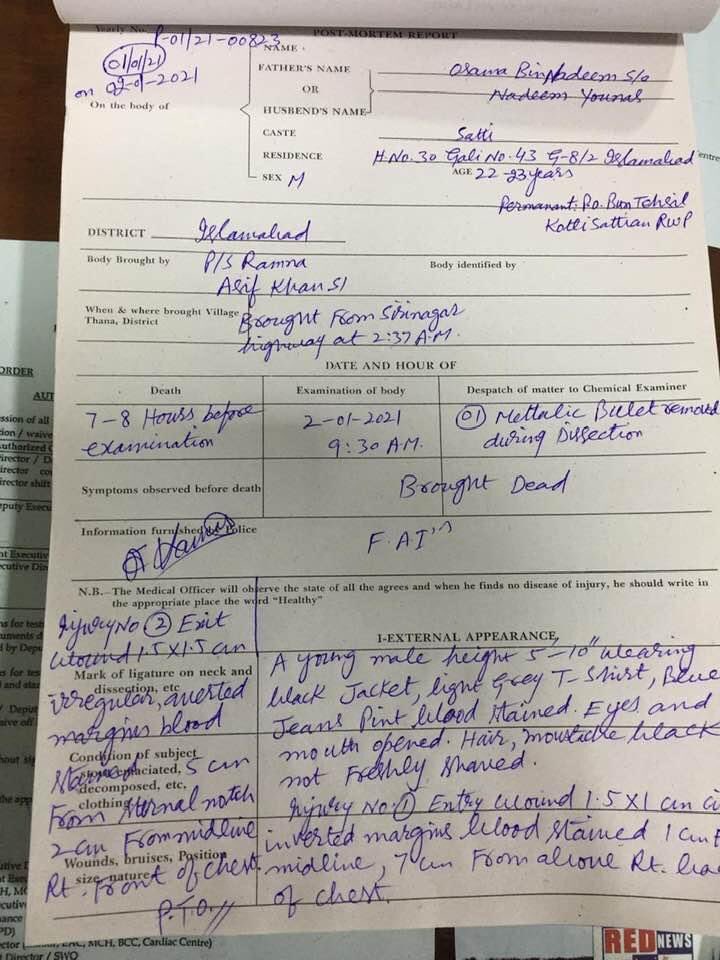 Yearly No. P-01/21-00823
POST-MORTEM REPORT
01/01/21
on 02-01-2021
On the body of
NAME
FATHER'S NAME
OR
HUSBAND'S NAME
Osama Bin Nadeem S/o
Nadeem Younas
CASTE Satti
RESIDENCE H.No. 30 Gali No. 43 G-8/2 Islamabad
SEX M AGE 22-23 years
Permanant: P.o. Bun Tehsil
Kotli Sattian RWP
DISTRICT Islamabad
Body Brought by P/S Ramna
Asif Khan SI
Body identified by
When & where brought Village Thana, District
Brought From Sirinagar
highway at 2:37 A.M.
DATE AND HOUR OF
Death
Examination of body
Despatch of matter to Chemical Examiner
7-8 Hours before
examination
2-01-2021
9:30 A.M.
01 Mettalic Bullet removed
during Dissection
Symptoms observed before death
Brought Dead
Information furnished by Police
F.A.I
N.B.–The Medical Officer will observe the state of all the agrees and when he finds no disease of injury, he should write in
the appropriate place the word "Healthy"
I-EXTERNAL APPEARANCE
Injury No 2 Exit
wound 1.5 X 1.5 cm
irregular, averted
margins blood
stained, 5 cm
From sternal notch
2 cm From midline
Rt. Front of chest.
P.T.O.
Mark of ligature on neck and
dissection, etc
Condition of subject
emaciated,
decomposed, etc,
clothing
Wounds, bruises, Position
size, nature
A young male height 5'-10" wearing
black Jacket, light Grey T-Shirt, Blue
Jeans Pint blood stained. Eyes and
mouth opened. Hair, moustache black
not Freshly shaved.
Injury No. 1 Entry wound 1.5 X 1 cm
inverted margins blood stained 1 cm
midline, 7 cm From above Rt.
of chest.
ORDER
MCH, BCC, Cardiac Centre)
Director / SWO
RED NEWS